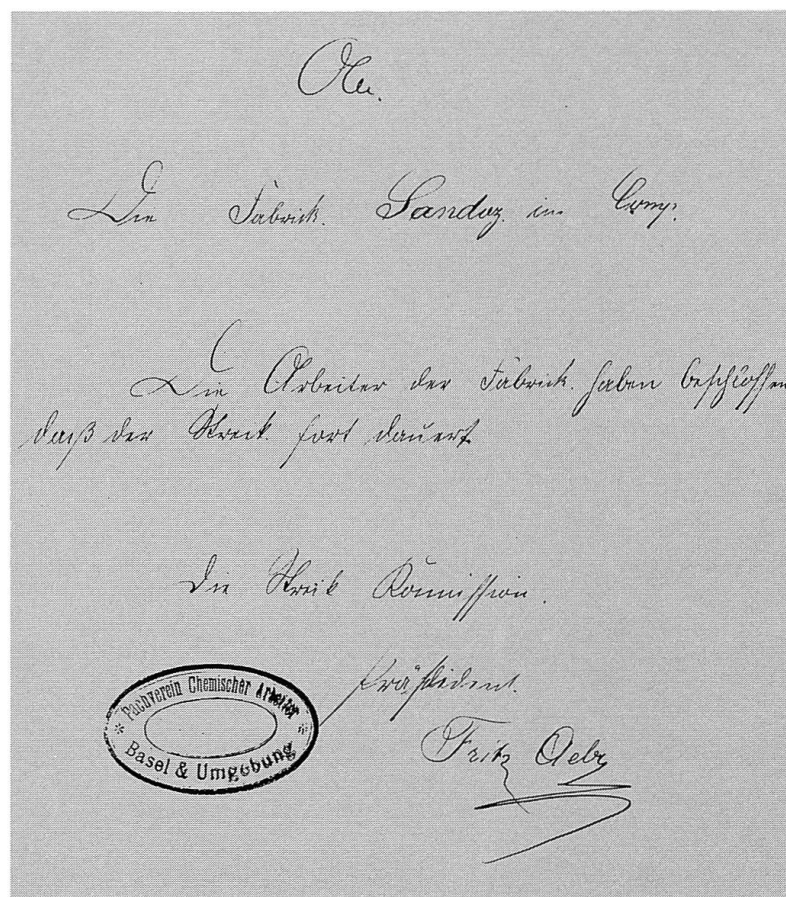 An.
Die Fabrick. Sandoz. in Comp.
Die Arbeiter der Fabrick. haben beschlossen
daß der Streck. fort dauert
Die Streik Kommission.
Präsident.
Fachverein Chemischer Arbeiter
Basel & Umgebung
Fritz